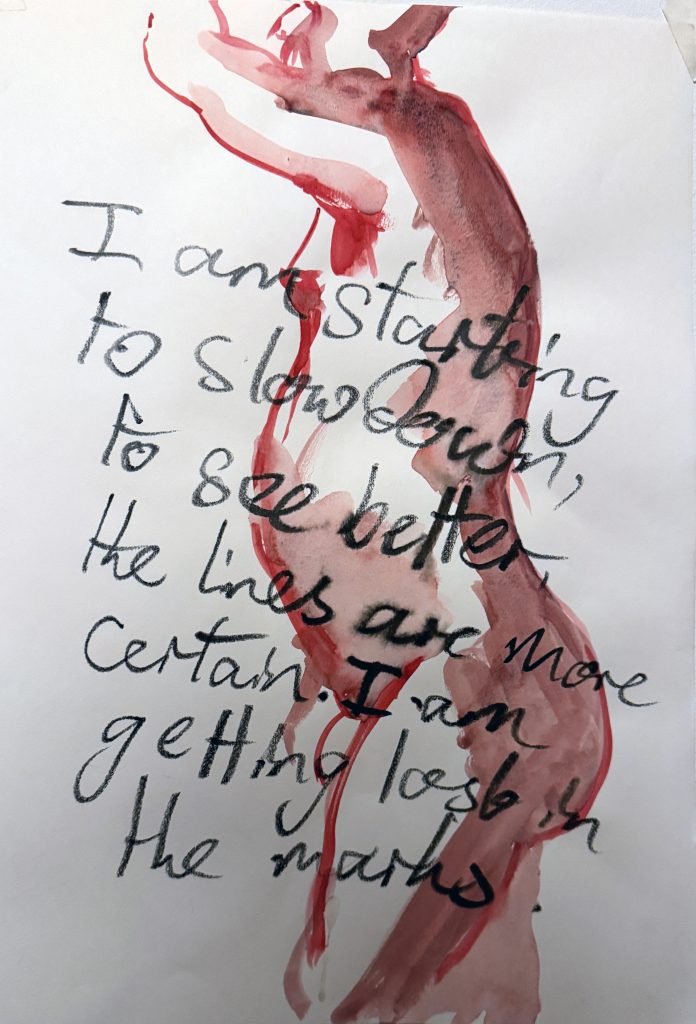 I am starting
to slow Down,
to see better,
the lines are more
certain. I am
getting lost in
the marks.